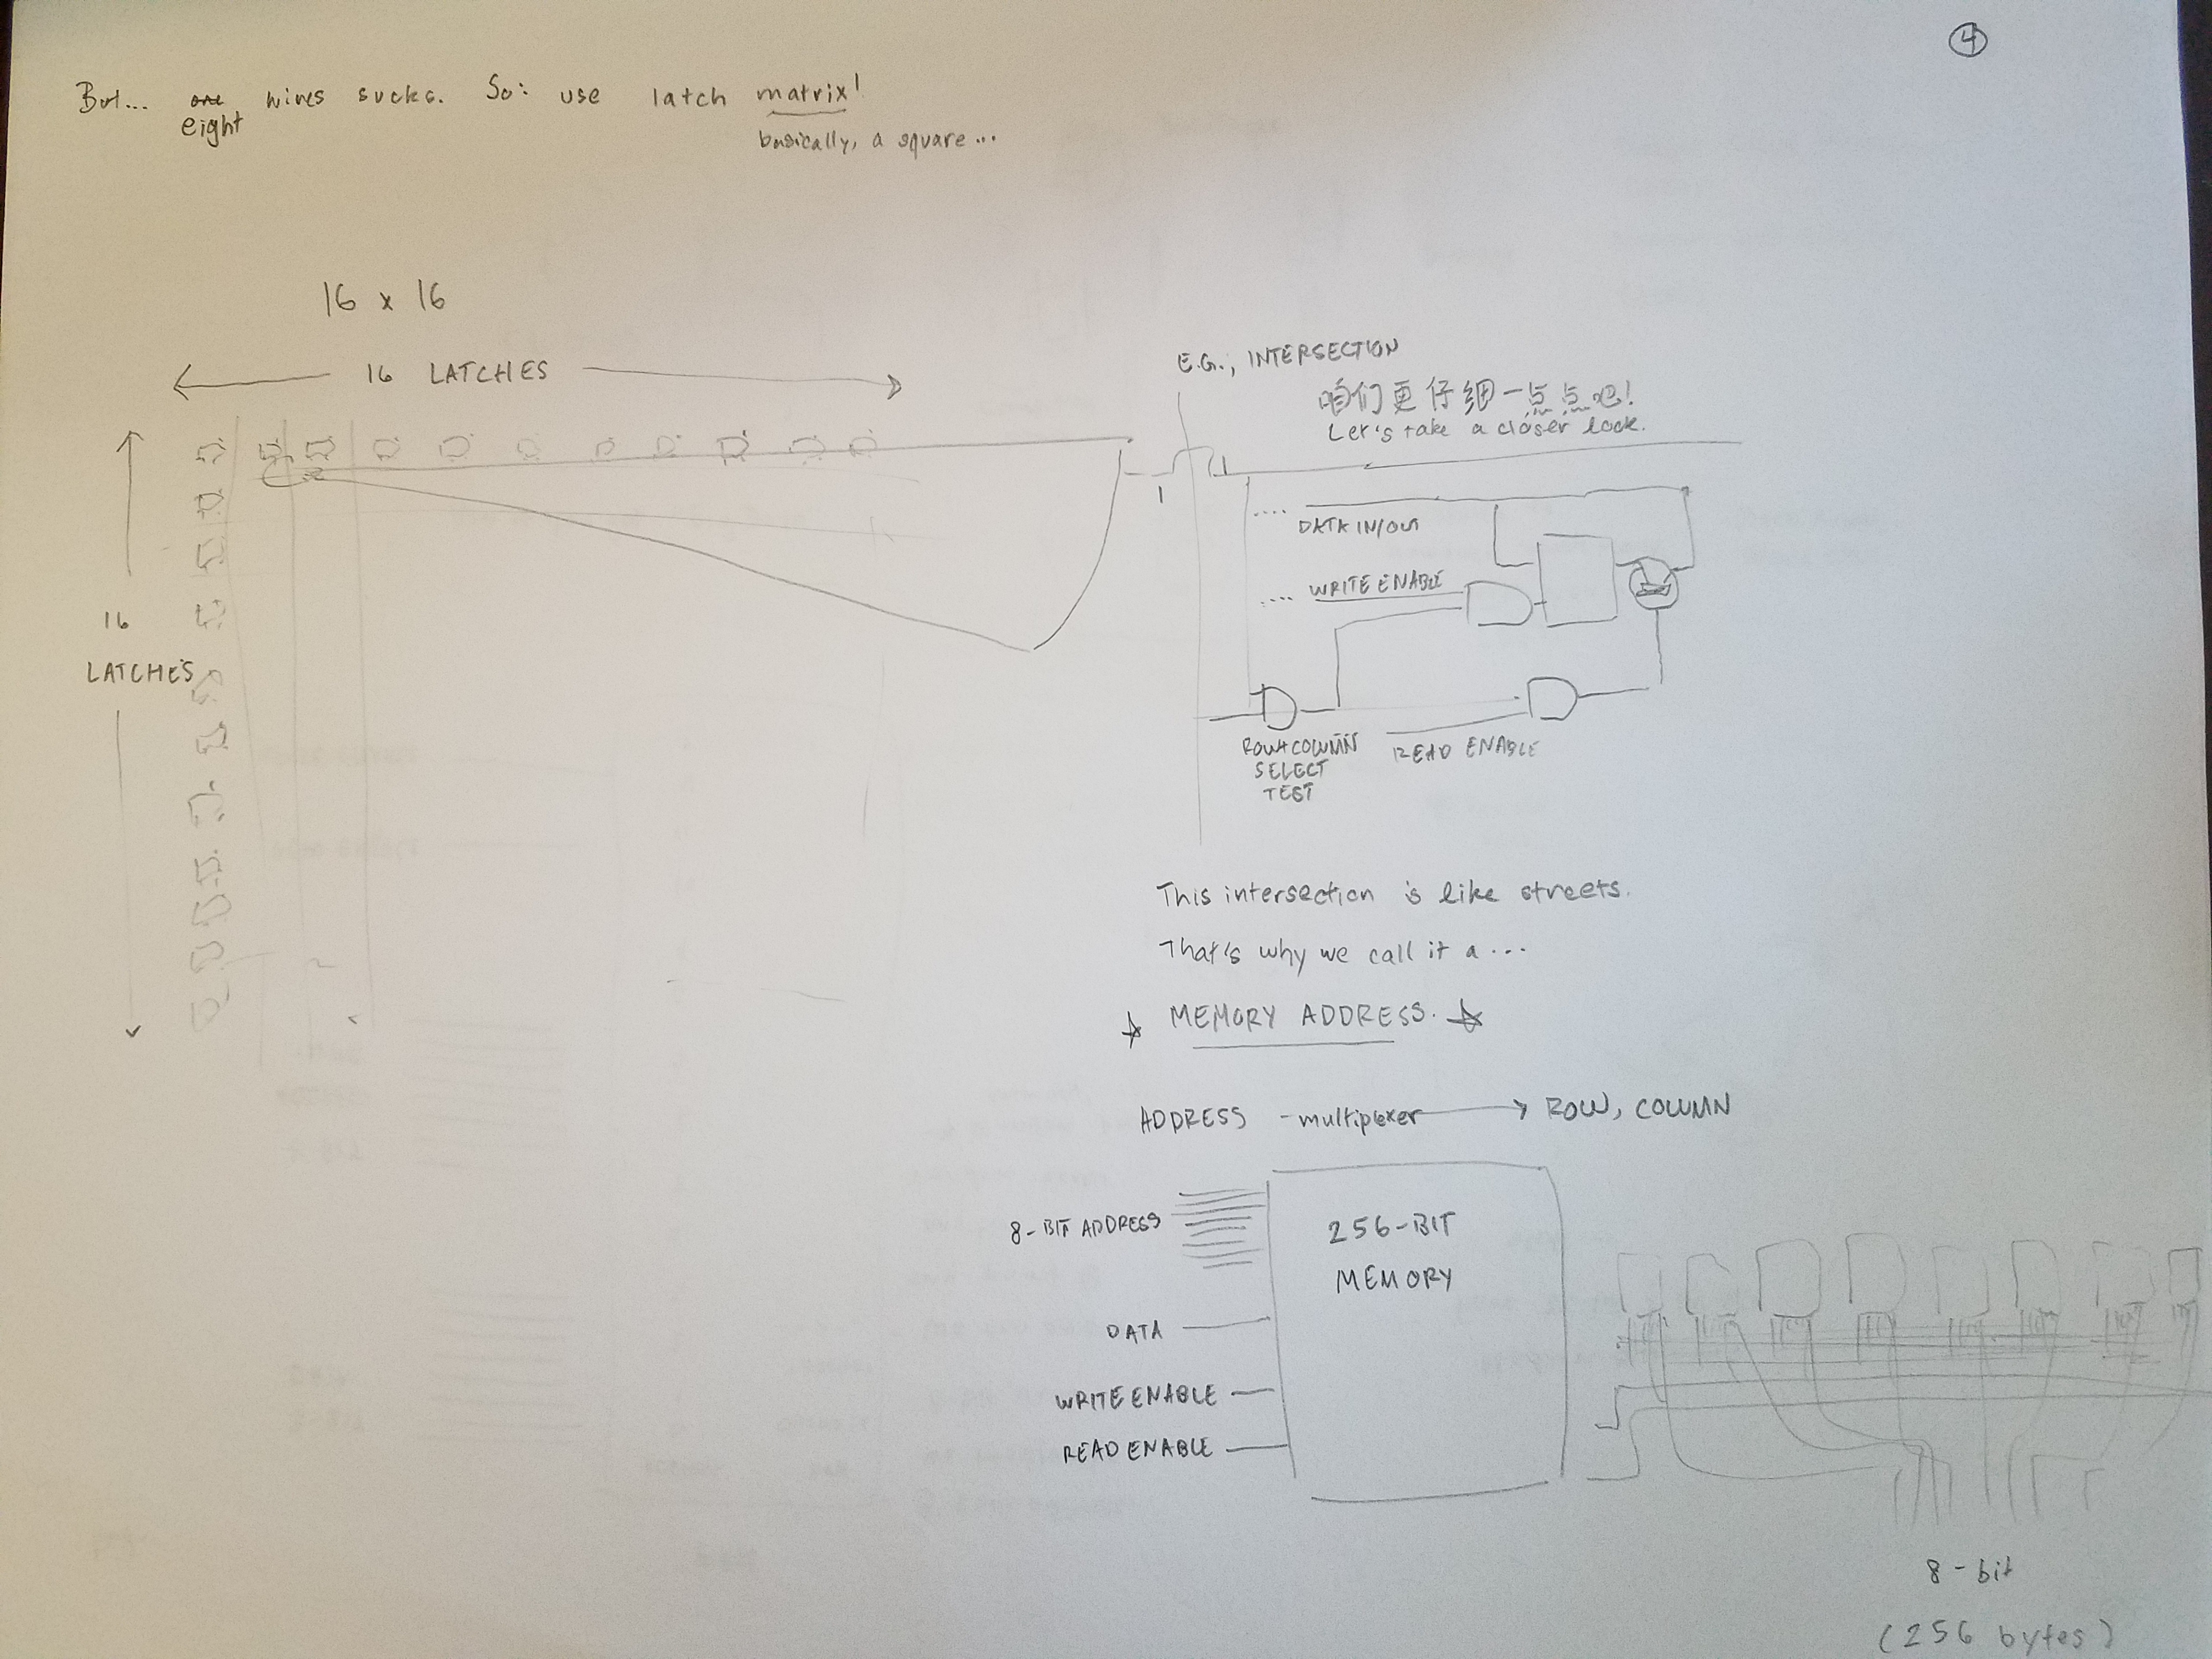 ④
But... one wires sucks. So: use latch matrix!
eight
basically, a square...
16 x 16
16 LATCHES
16
LATCHES
E.G., INTERSECTION
咱们更仔细一点点吧!
Let's take a closer look.
.... DATA IN/OUT
.... WRITE ENABLE
ROW+COLUMN
SELECT
TEST
READ ENABLE
This intersection is like streets.
That's why we call it a...
☆ MEMORY ADDRESS. ☆
ADDRESS - multiplexer → ROW, COLUMN
8-BIT ADDRESS
DATA
WRITE ENABLE
READ ENABLE
256-BIT
MEMORY
8-bit
(256 bytes)